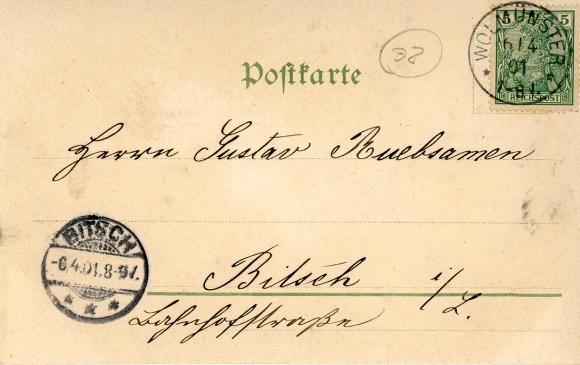 Postkarte
WOLMÜNSTER
5
6/4
01
REICHSPOST
Herrn Gustav Ruebsamen
BITSCH
-6.4.01.8-9V.
Bitsch i/L.
Bahnhofstraße